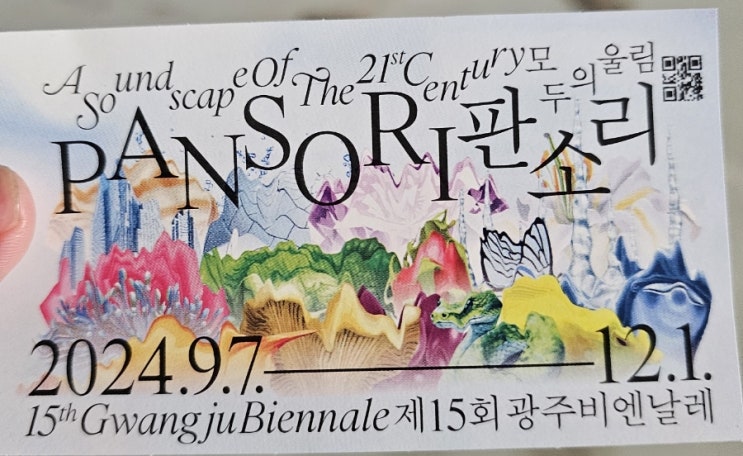 A Soundscape Of The 21st Century 모두의 울림
PANSORI 판소리
2024.9.7.—12.1.
15th Gwangju Biennale 제15회 광주비엔날레